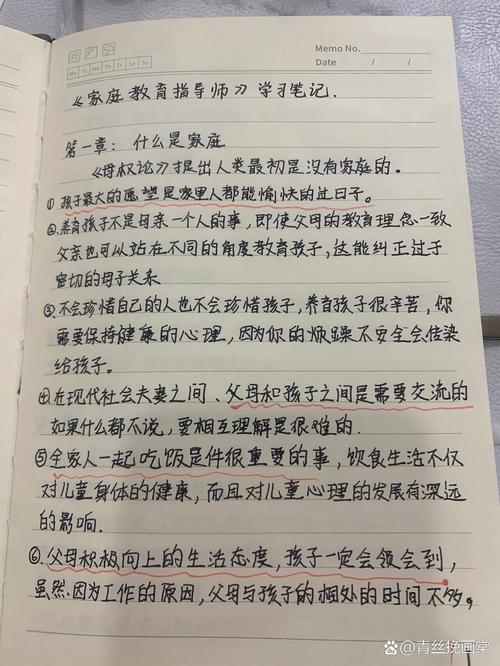 Memo No.
Mo Tu We Th Fr Sa Su
Date / /
《家庭教育指导师》学习笔记.
第一章：什么是家庭
《母权论》提出人类最初是没有家庭的。
① 孩子最大的愿望是家里人都能愉快的过日子。
②.养育孩子不是母亲一个人的事，即使父母的教育理念一致
父亲也可以站在不同的角度教育孩子，这能纠正过于
密切的母子关系
③.不会珍惜自己的人也不会珍惜孩子，养育孩子很辛苦，你
需要保持健康的心理，因为你的烦躁不安全会传染
给孩子。
④.在现代社会夫妻之间、父母和孩子之间是需要交流的
如果什么都不说，要相互理解是很难的.
⑤全家人一起吃饭是件很重要的事，饮食生活不仅
对儿童身体的健康，而且对儿童心理的发展有深远
的影响.
⑥.父母积极向上的生活态度，孩子一定会领会到，
虽然.因为工作的原因，父母与孩子的相处的时间不够，
青丝挽画棠